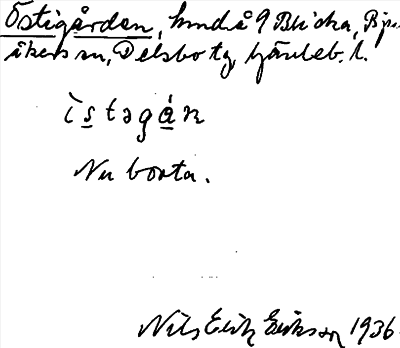 Östigården, hemd å 9 Blicka, Bju-
åkers sn, Delsbo tg, Gävleb. l.
ìstəgán
Nu borta.
Nils Erik Eriksson 1936.